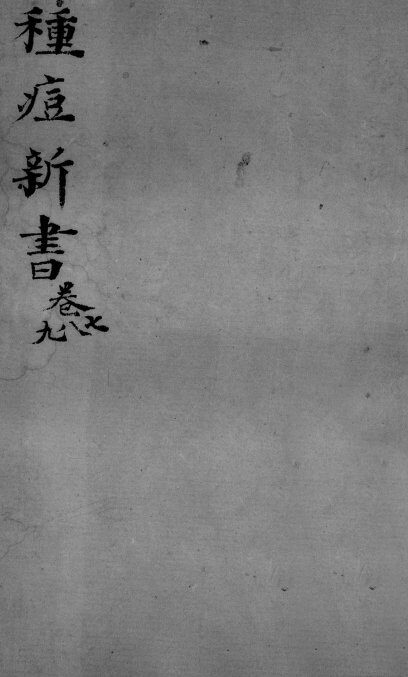 種痘新書
卷七八九